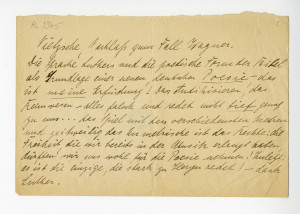 Nietzsche Nachlaß zum Fall Wagner.
Die Sprache Luthers und die poetische Form der Bibel
als Grundlage einer neuen deutschen Poesie – das
ist meine Erfindung! Das Antikisieren, das
Reimwesen – alles falsch und redet nicht tief genug
zu uns... das Spiel mit den verschiedensten Metren
und zeitweilig das Unmetrische ist das Rechte: die
Freiheit die wir bereits in der Musik erlangt haben
dürfen wir uns wohl für die Poesie nehmen! Zuletzt:
es ist die einzige, die stark zu Herzen redet! – Dank
Luther.